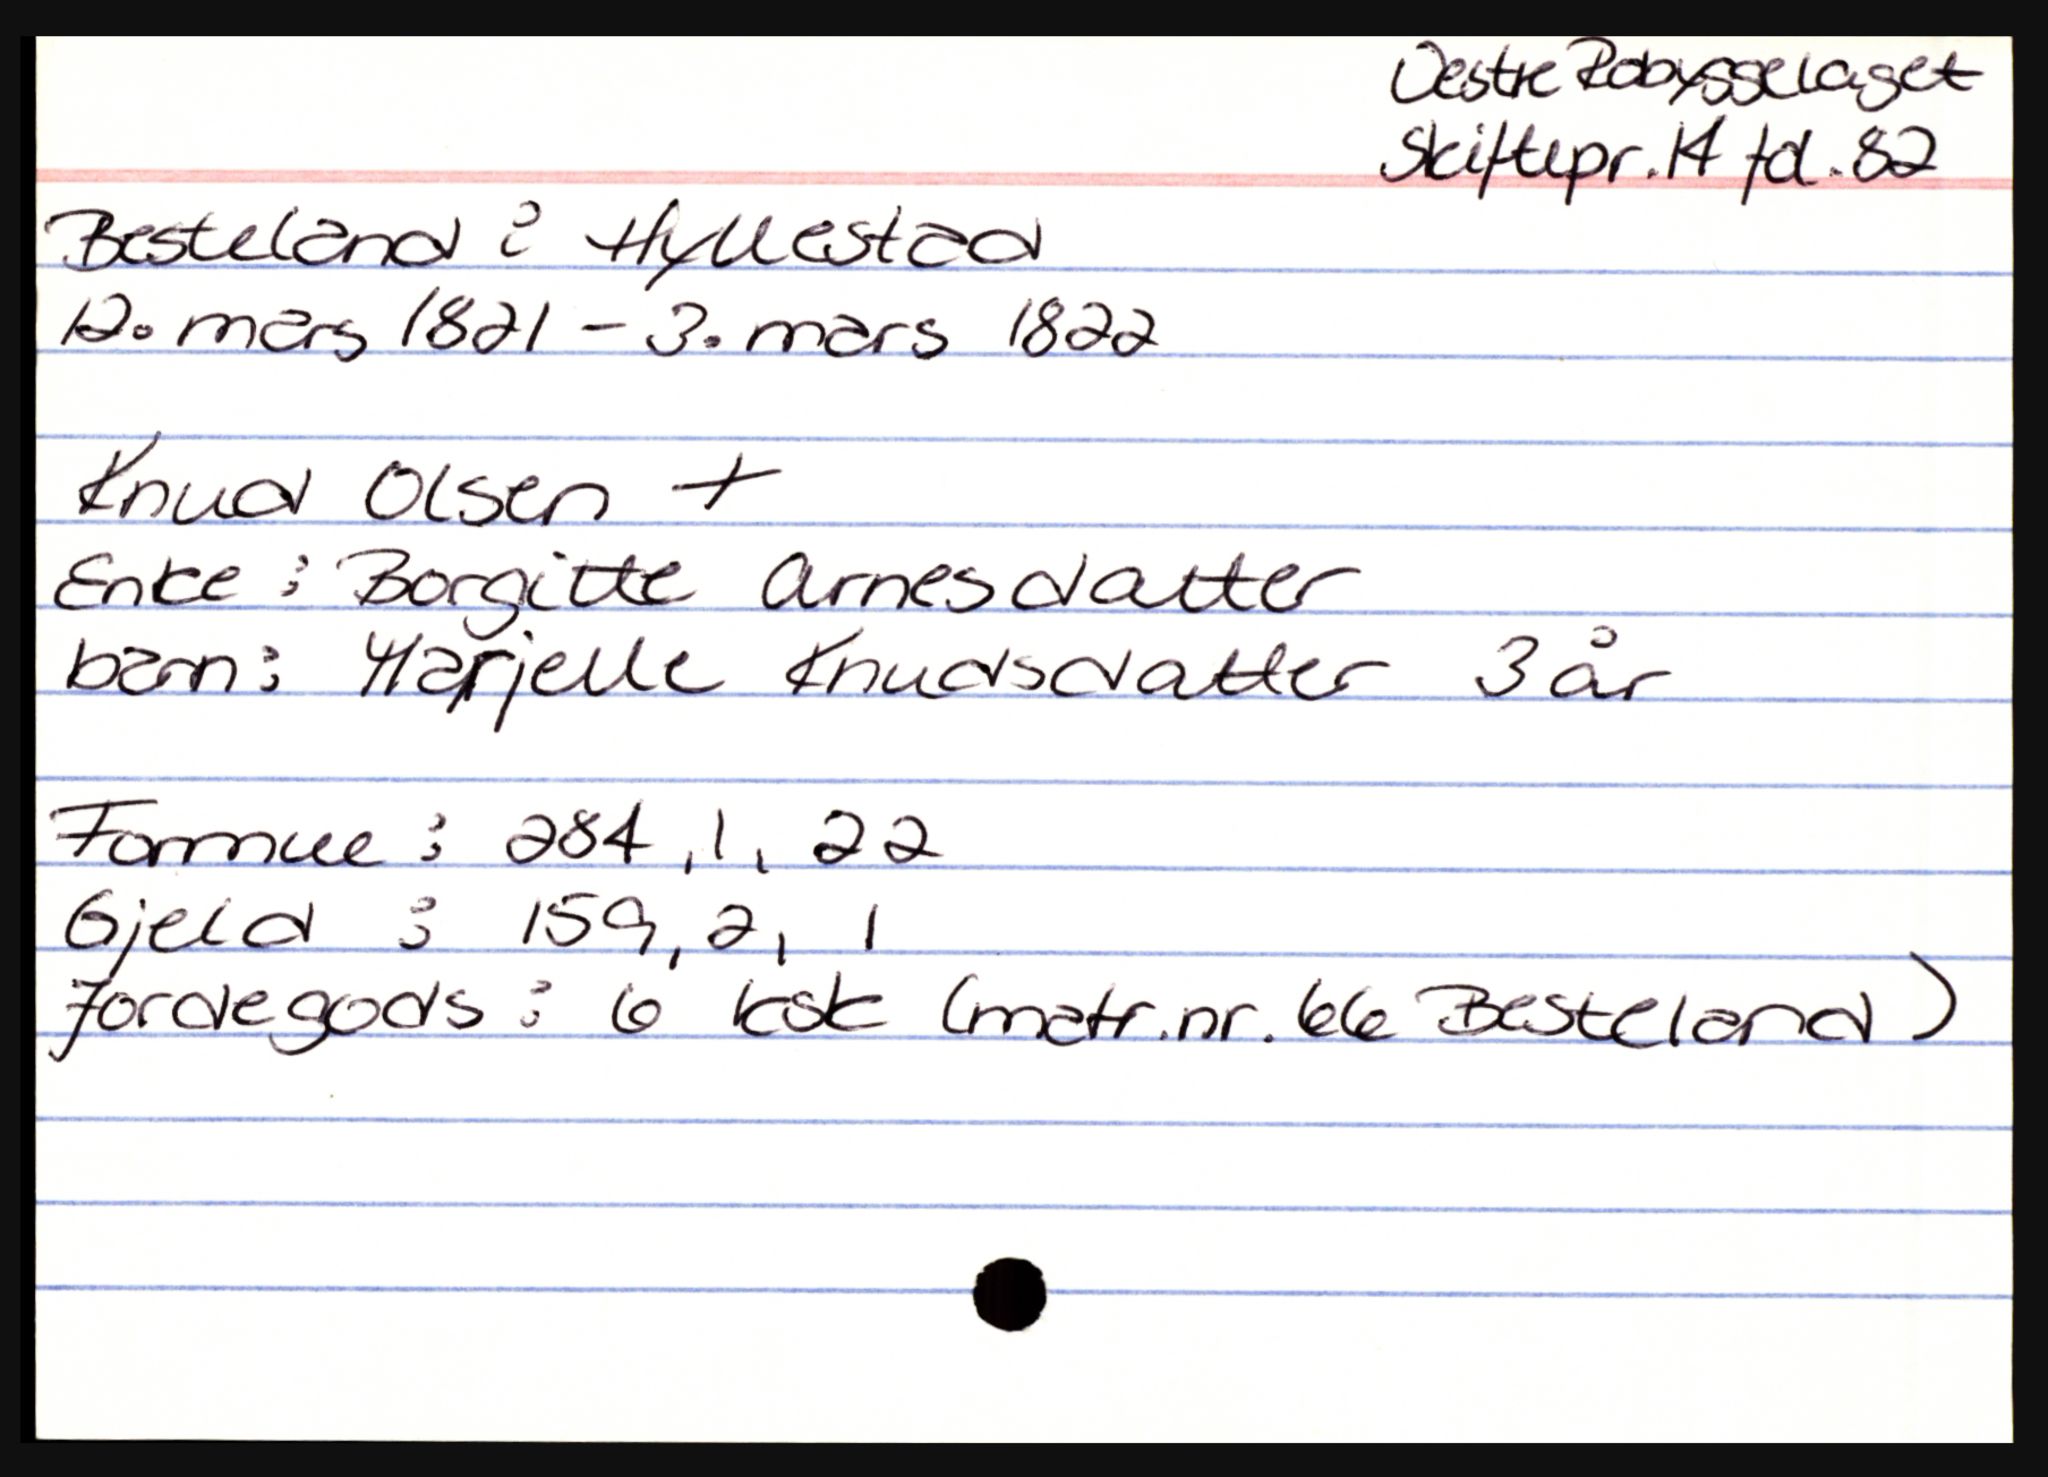 Vestre Robyggelaget
Skiftepr. 14 fol. 82
Besteland i Hyllestad
12. mars 1821 - 3. mars 1822
Knud Olsen +
Enke : Borgitte Arnesdatter
barn : Harjelle Knudsdatter 3 år
Formue : 284, 1, 22
Gjeld : 159, 2, 1
Jordegods : 6 ksk (matr.nr. 66 Besteland)